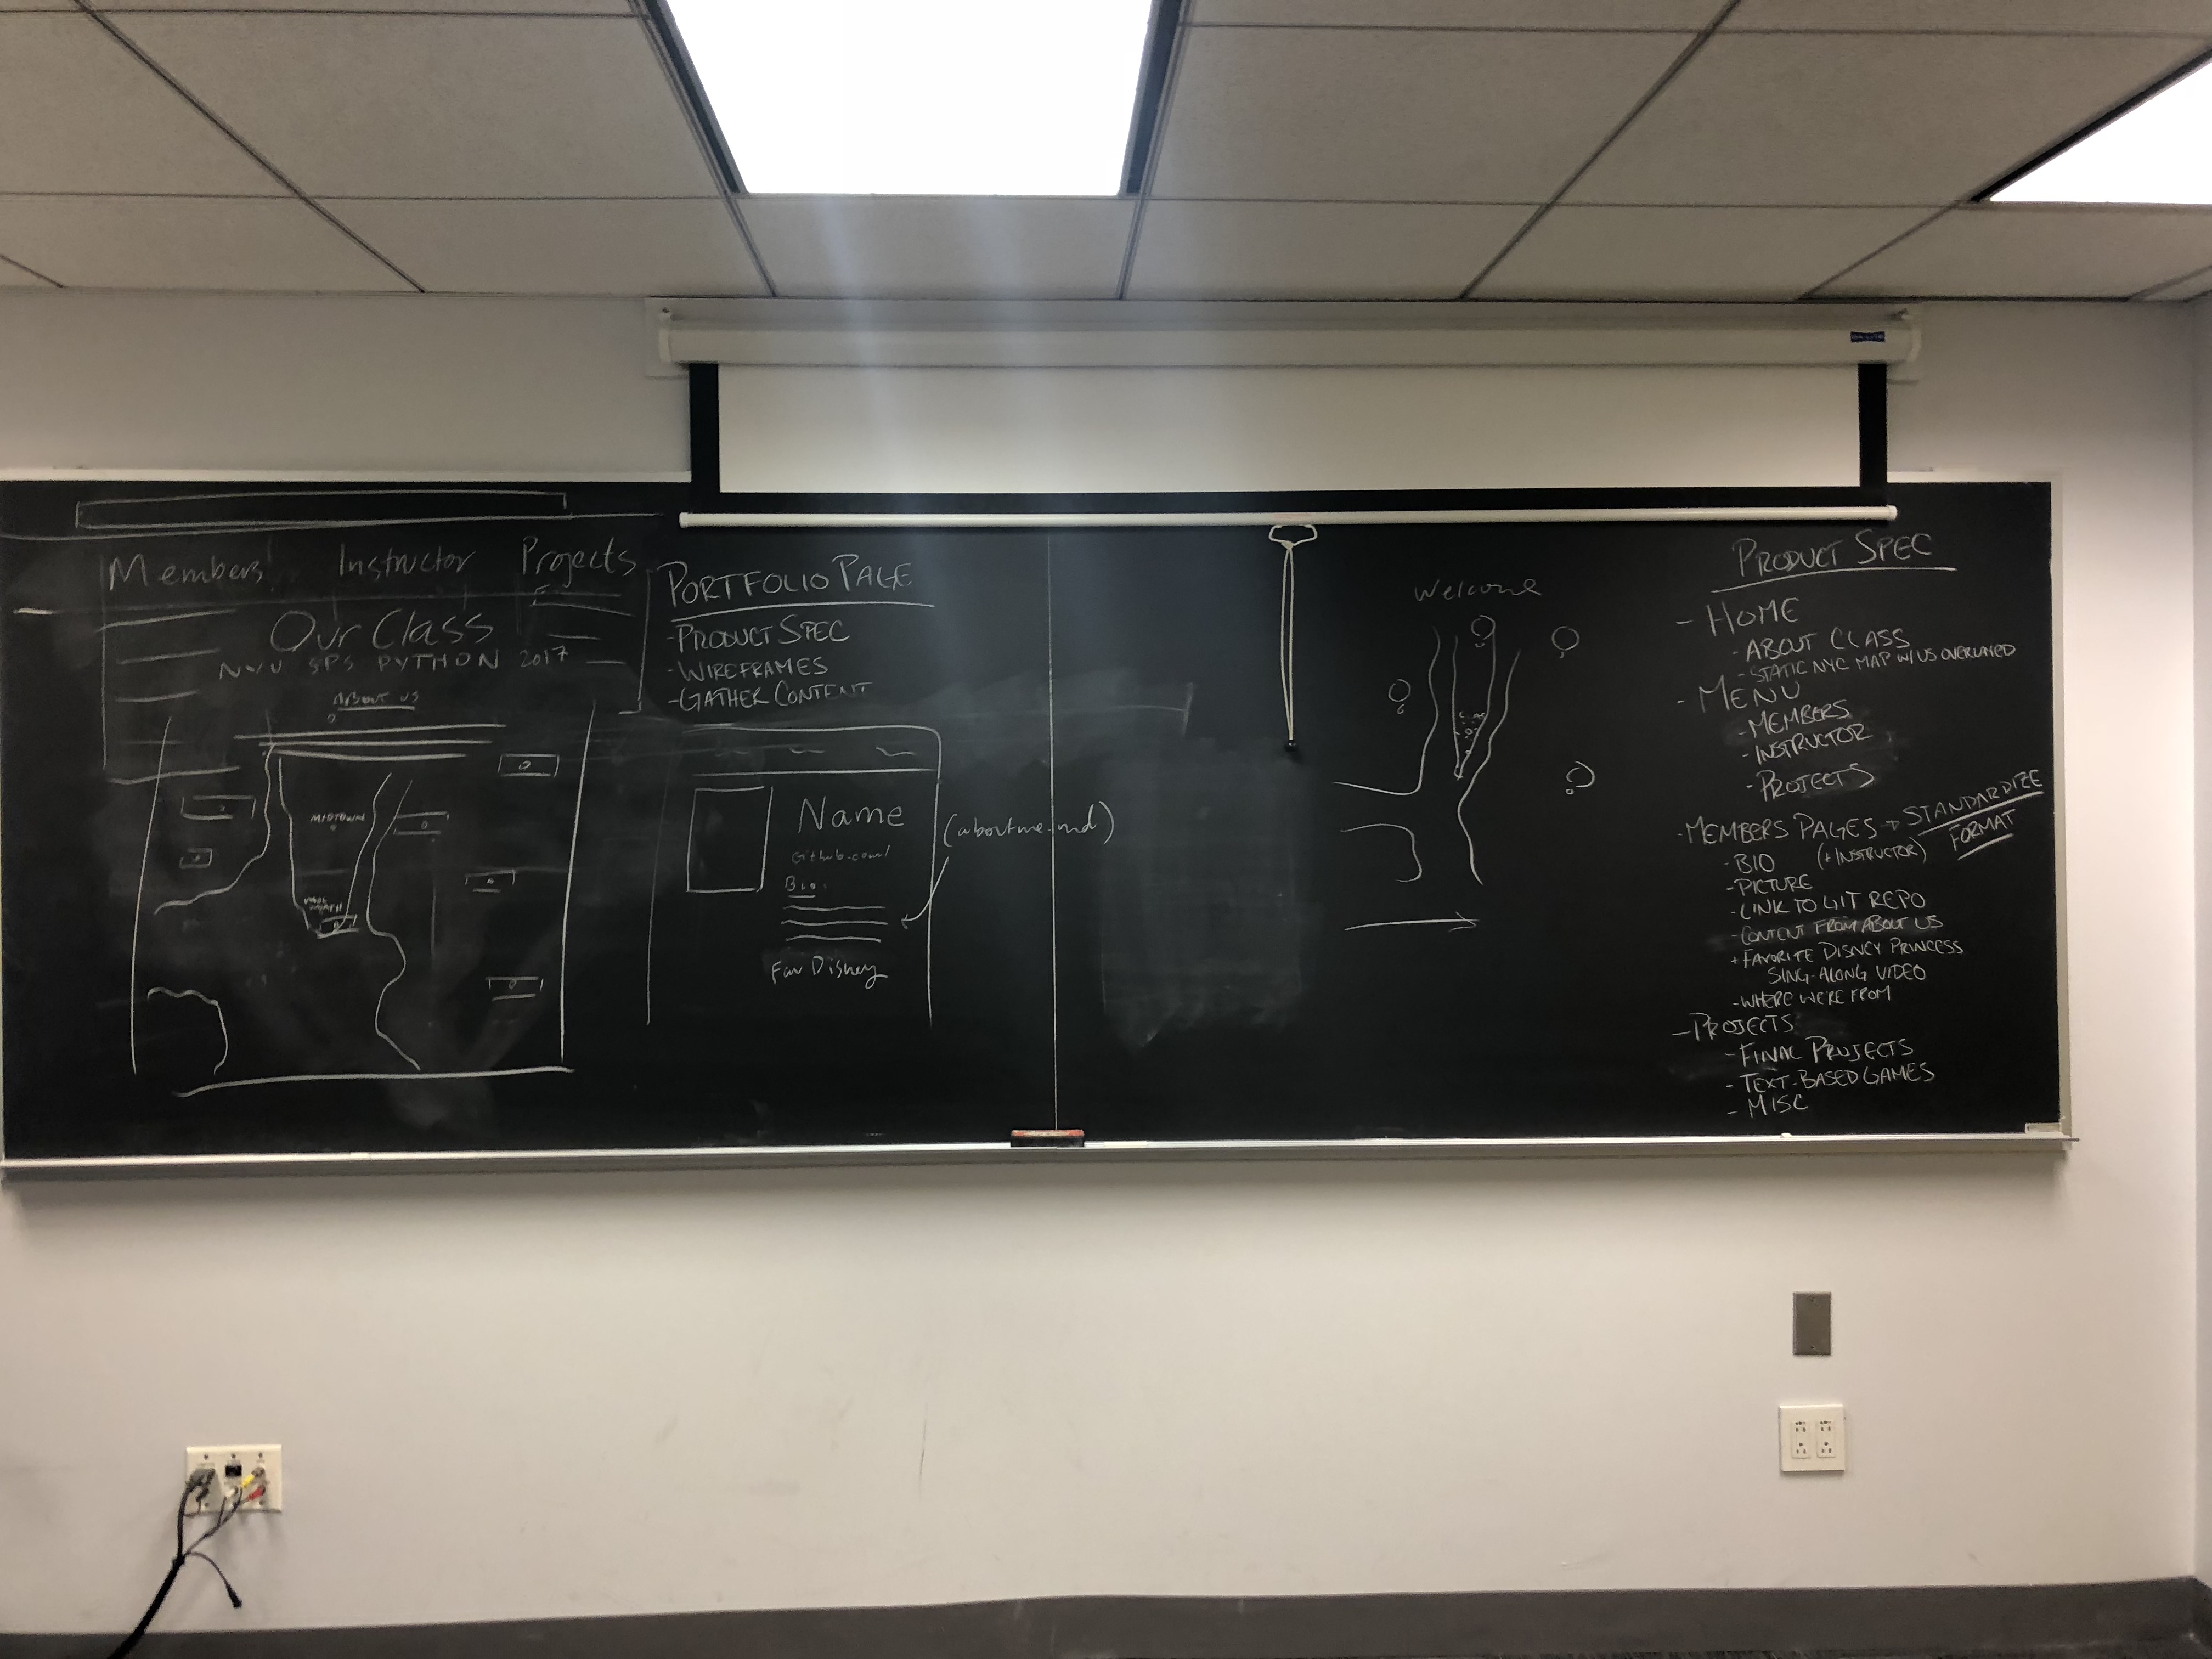 Members Instructor Projects
Our Class
NYU SPS PYTHON 2017
ABOUT US
MIDTOWN
PORTFOLIO PAGE
-PRODUCT SPEC
-WIREFRAMES
-GATHER CONTENT
Name
Github.com/
Bio.
Fav Disney
(aboutme.md)
Welcome
PRODUCT SPEC
- HOME
- ABOUT CLASS
- STATIC NYC MAP W/US OVERLAYED
- MENU
- MEMBERS
- INSTRUCTOR
- PROJECTS
- MEMBERS PAGES → STANDARDIZE
FORMAT
(+ INSTRUCTOR)
- BIO
- PICTURE
- LINK TO GIT REPO
- CONTENT FROM ABOUT US
+ FAVORITE DISNEY PRINCESS
SING-ALONG VIDEO
- WHERE WE'RE FROM
- PROJECTS
- FINAL PROJECTS
- TEXT-BASED GAMES
- MISC